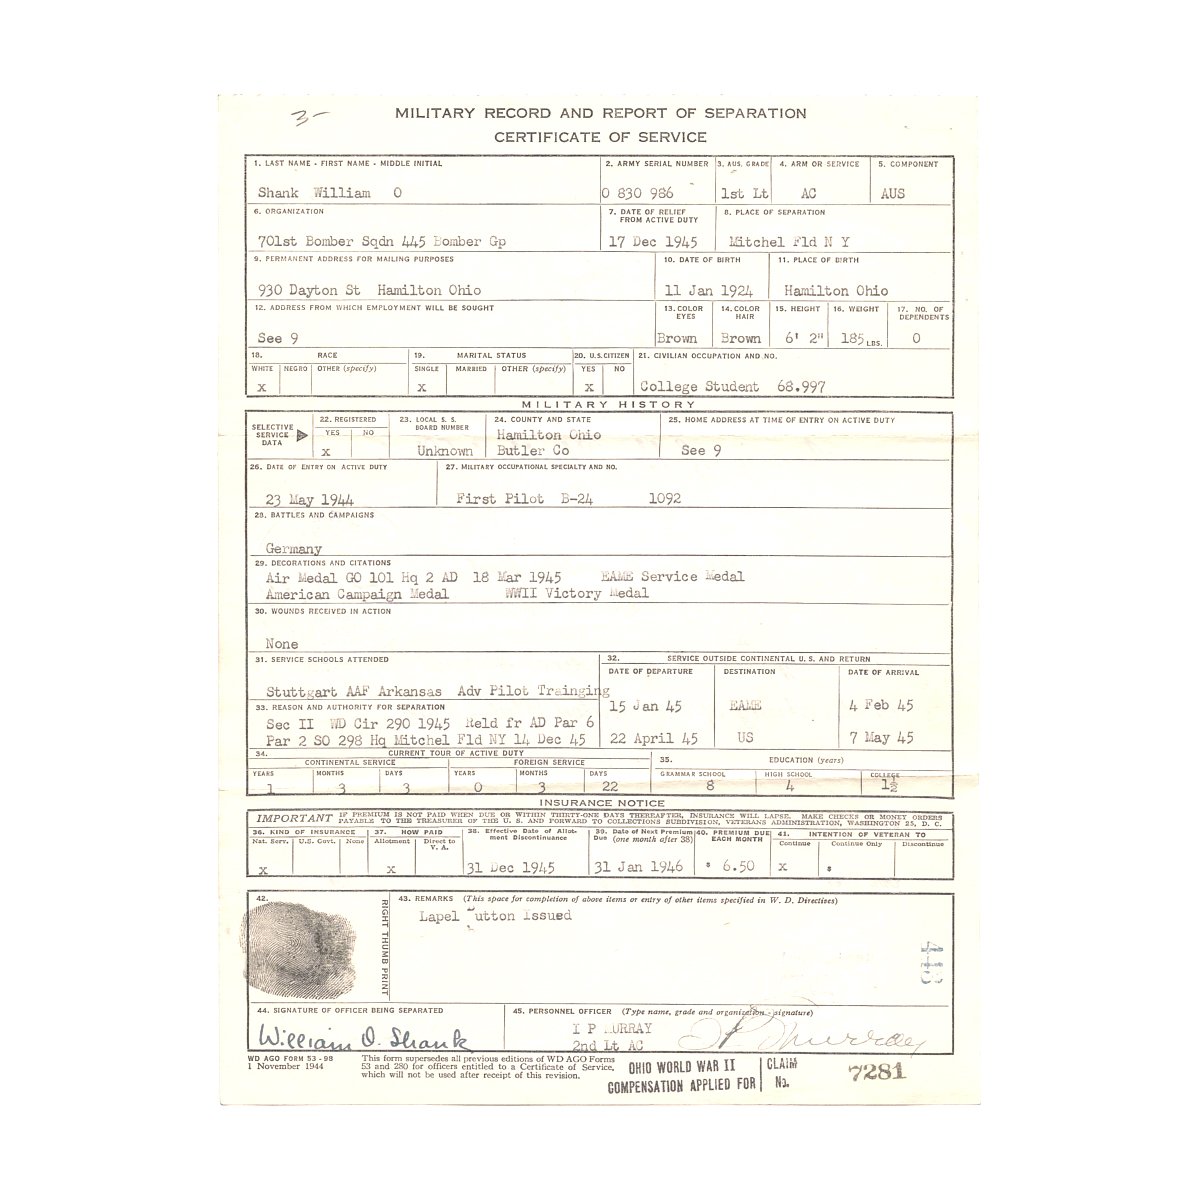 3-
MILITARY RECORD AND REPORT OF SEPARATION
CERTIFICATE OF SERVICE
1. LAST NAME - FIRST NAME - MIDDLE INITIAL 2. ARMY SERIAL NUMBER 3. AUS. GRADE 4. ARM OR SERVICE 5. COMPONENT
Shank William O O 830 986 1st Lt AC AUS
6. ORGANIZATION 7. DATE OF RELIEF FROM ACTIVE DUTY 8. PLACE OF SEPARATION
701st Bomber Sqdn 445 Bomber Gp 17 Dec 1945 Mitchel Fld N Y
9. PERMANENT ADDRESS FOR MAILING PURPOSES 10. DATE OF BIRTH 11. PLACE OF BIRTH
930 Dayton St Hamilton Ohio 11 Jan 1924 Hamilton Ohio
12. ADDRESS FROM WHICH EMPLOYMENT WILL BE SOUGHT 13. COLOR EYES 14. COLOR HAIR 15. HEIGHT 16. WEIGHT 17. NO. OF DEPENDENTS
See 9 Brown Brown 6' 2" 185 LBS. 0
18. RACE 19. MARITAL STATUS 20. U.S. CITIZEN 21. CIVILIAN OCCUPATION AND NO.
WHITE NEGRO OTHER (specify) SINGLE MARRIED OTHER (specify) YES NO
x x x College Student 68.997
MILITARY HISTORY
SELECTIVE SERVICE DATA 22. REGISTERED 23. LOCAL S. S. BOARD NUMBER 24. COUNTY AND STATE 25. HOME ADDRESS AT TIME OF ENTRY ON ACTIVE DUTY
YES NO Hamilton Ohio
x Unknown Butler Co See 9
26. DATE OF ENTRY ON ACTIVE DUTY 27. MILITARY OCCUPATIONAL SPECIALTY AND NO.
23 May 1944 First Pilot B-24 1092
28. BATTLES AND CAMPAIGNS
Germany
29. DECORATIONS AND CITATIONS
Air Medal GO 101 Hq 2 AD 18 Mar 1945 EAME Service Medal
American Campaign Medal WWII Victory Medal
30. WOUNDS RECEIVED IN ACTION
None
31. SERVICE SCHOOLS ATTENDED 32. SERVICE OUTSIDE CONTINENTAL U. S. AND RETURN
DATE OF DEPARTURE DESTINATION DATE OF ARRIVAL
Stuttgart AAF Arkansas Adv Pilot Trainging
15 Jan 45 EAME 4 Feb 45
33. REASON AND AUTHORITY FOR SEPARATION
Sec II WD Cir 290 1945 Reld fr AD Par 6
Par 2 SO 298 Hq Mitchel Fld NY 14 Dec 45 22 April 45 US 7 May 45
34. CURRENT TOUR OF ACTIVE DUTY 35. EDUCATION (years)
CONTINENTAL SERVICE FOREIGN SERVICE
YEARS MONTHS DAYS YEARS MONTHS DAYS GRAMMAR SCHOOL HIGH SCHOOL COLLEGE
1 3 3 0 3 22 8 4 1½
INSURANCE NOTICE
IMPORTANT IF PREMIUM IS NOT PAID WHEN DUE OR WITHIN THIRTY-ONE DAYS THEREAFTER, INSURANCE WILL LAPSE. MAKE CHECKS OR MONEY ORDERS
PAYABLE TO THE TREASURER OF THE U. S. AND FORWARD TO COLLECTIONS SUBDIVISION, VETERANS ADMINISTRATION, WASHINGTON 25, D. C.
36. KIND OF INSURANCE 37. HOW PAID 38. Effective Date of Allotment Discontinuance 39. Date of Next Premium Due (one month after 38) 40. PREMIUM DUE EACH MONTH 41. INTENTION OF VETERAN TO
Nat. Serv. U.S. Govt. None Allotment Direct to V. A. Continue Continue Only Discontinue
x x 31 Dec 1945 31 Jan 1946 $ 6.50 x $
42. RIGHT THUMB PRINT 43. REMARKS (This space for completion of above items or entry of other items specified in W. D. Directives)
Lapel Button Issued
44. SIGNATURE OF OFFICER BEING SEPARATED 45. PERSONNEL OFFICER (Type name, grade and organization - signature)
William O. Shank I P MURRAY I P Murray
2nd Lt AC
WD AGO FORM 53-98
1 November 1944
This form supersedes all previous editions of WD AGO Forms
53 and 280 for officers entitled to a Certificate of Service,
which will not be used after receipt of this revision.
OHIO WORLD WAR II
COMPENSATION APPLIED FOR
CLAIM
No.
7281